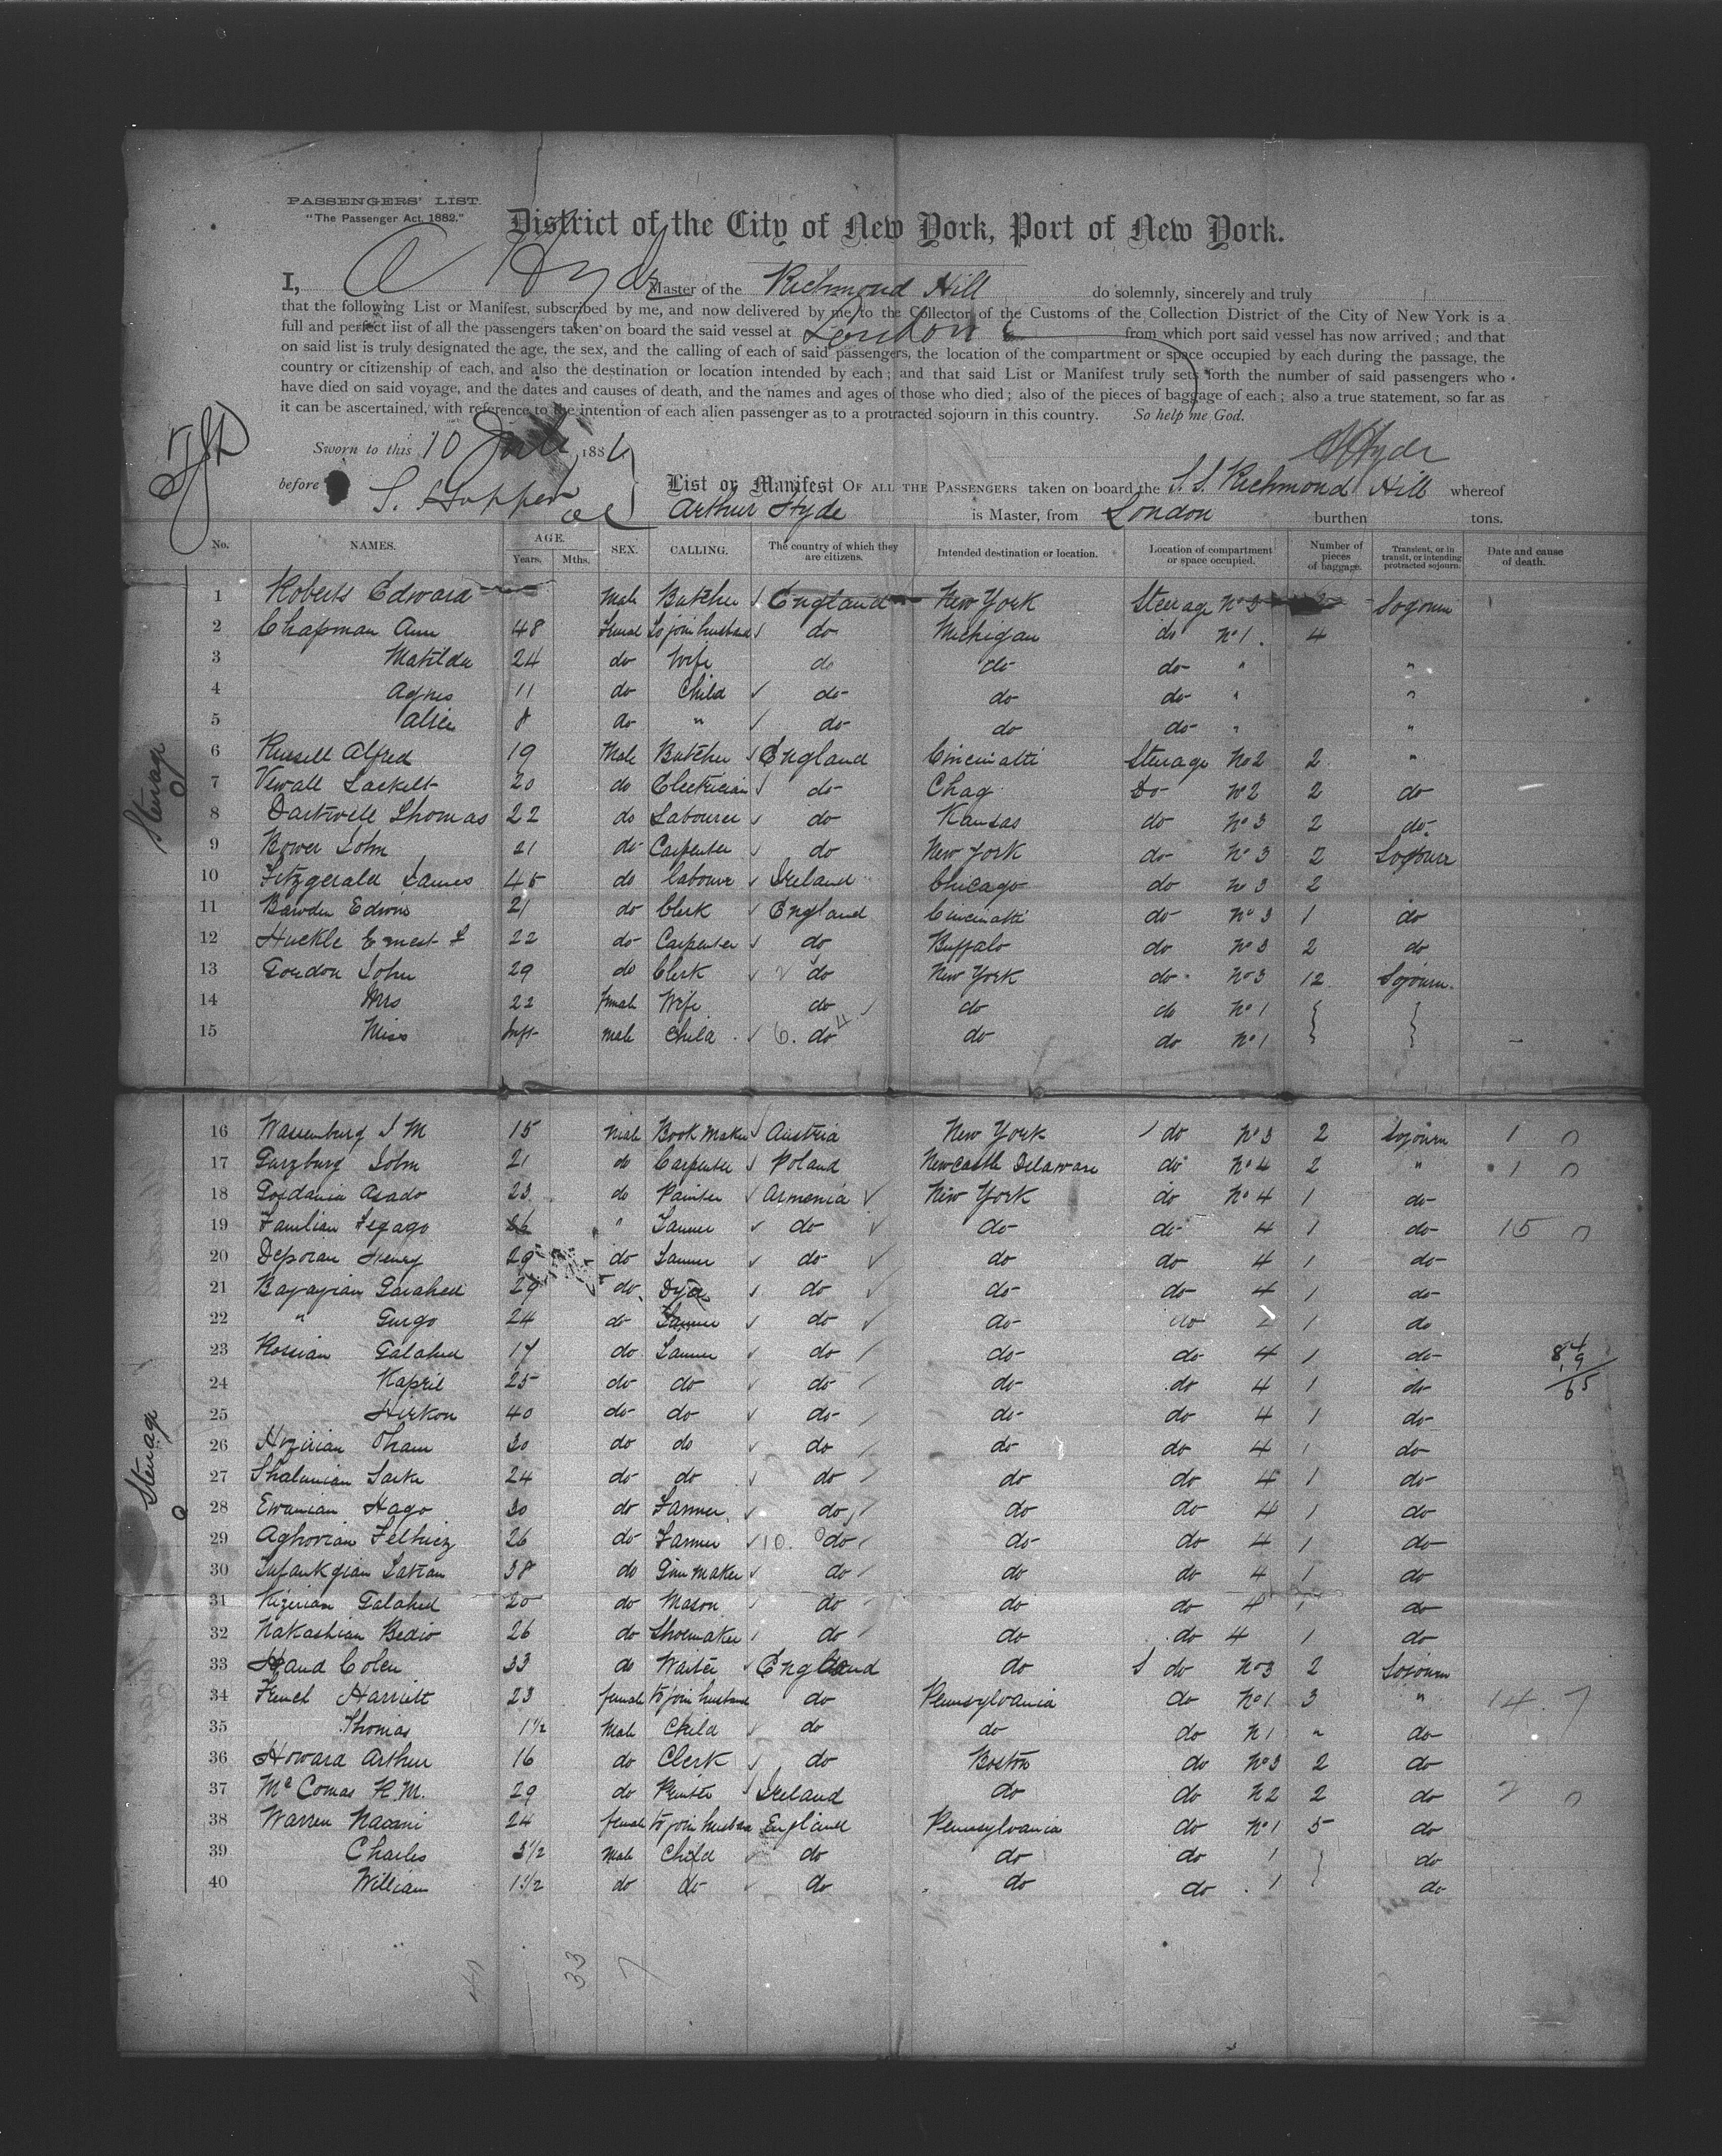 PASSENGERS' LIST.
"The Passenger Act, 1882."
District of the City of New York, Port of New York.
I, A Hyde Master of the Richmond Hill do solemnly, sincerely and truly
that the following List or Manifest, subscribed by me, and now delivered by me to the Collector of the Customs of the Collection District of the City of New York is a
full and perfect list of all the passengers taken on board the said vessel at London from which port said vessel has now arrived; and that
on said list is truly designated the age, the sex, and the calling of each of said passengers, the location of the compartment or space occupied by each during the passage, the
country or citizenship of each, and also the destination or location intended by each; and that said List or Manifest truly sets forth the number of said passengers who
have died on said voyage, and the dates and causes of death, and the names and ages of those who died; also of the pieces of baggage of each; also a true statement, so far as
it can be ascertained, with reference to the intention of each alien passenger as to a protracted sojourn in this country. So help me God.
Sworn to this 10 188
A Hyde
before S. Hopper
List or Manifest OF ALL THE PASSENGERS taken on board the S.S. Richmond Hill whereof
Arthur Hyde is Master, from London burthen tons.
No. NAMES. AGE. Years. Mths. SEX. CALLING. The country of which they are citizens. Intended destination or location. Location of compartment or space occupied. Number of pieces of baggage. Transient, or in transit, or intending protracted sojourn. Date and cause of death.
Steerage
1 Roberts Edward Male Butcher England New York Steerage No 3 Sojourn
2 Chapman Ann 48 Female To join husband do Michigan do No 1 4
3 Matilda 24 do Wife do do do " "
4 Agnes 11 do Child do do do " "
5 Alice 8 do " do do do " "
6 Russell Alfred 19 Male Butcher England Cincinatti Steerage No 2 2 "
7 20 do Electrician do Chag Do No 2 2 do
8 Thomas 22 do Labourer do Kansas do No 3 2 do
9 Bower John 21 do Carpenter do New York do No 3 2 Sojourn
10 Fitzgerald James 45 do Labourer Ireland Chicago do No 3 2
11 Bawden Edwin 21 do Clerk England Cincinatti do No 3 1 do
12 Huckle Ernest 22 do Carpenter do Buffalo do No 3 2 do
13 Gordon John 29 do Clerk do New York do No 3 12 Sojourn
14 Mrs 22 Female Wife do do do No 1
15 Miss Inft male Child 6. do 4 do do No 1
16 Wassenburg J M 15 Male Book Maker Austria New York do No 3 2 Sojourn 1 0
17 Gurzburg John 21 do Carpenter Poland Newcastle Delaware do No 4 2 " 1 0
18 Asado 23 do Painter Armenia New York do No 4 1 do
19 Familian 26 " do do do 4 1 do 15 0
20 Henry 29 do do do do 4 1 do
21 29 do do do do 4 1 do
22 " Gurgo 24 do do do do 1 do
23 Rossian Galahed 17 do do do do 4 1 do
24 Kapril 25 do do do do do 4 1 do
25 Hirkon 40 do do do do do 4 1 do
26 Ohan 30 do do do do do 4 1 do
27 Sarke 24 do do do do do 4 1 do
28 Ewanian Hago 30 do Farmer do do do 4 1 do
29 Aghovian 26 do Farmer 10. do do do 4 1 do
30 38 do Gun maker do do do 4 1 do
31 Kizirian Galahed 20 do Mason do do do 4 1 do
32 Nakashian Bedio 26 do Shoemaker do do do 4 1 do
33 Hand Colen 33 do Waiter England do do No 3 2 Sojourn
34 French Harriett 23 female To join husband do Pennsylvania do No 1 3 " 14. 7
35 Thomas 1 1/2 Male Child do do do N 1 " do
36 Howard Arthur 16 do Clerk do Boston do No 3 2 do
37 McComas R.M. 29 do Ireland do do N 2 2 do 2 0
38 Warren Naomi 24 female To join husban England Pennsylvania do No 1 5 do
39 Charles 3 1/2 Male Child do do do 1 do
40 William 1 1/2 do do do do do 1 do
Steerage
33 7